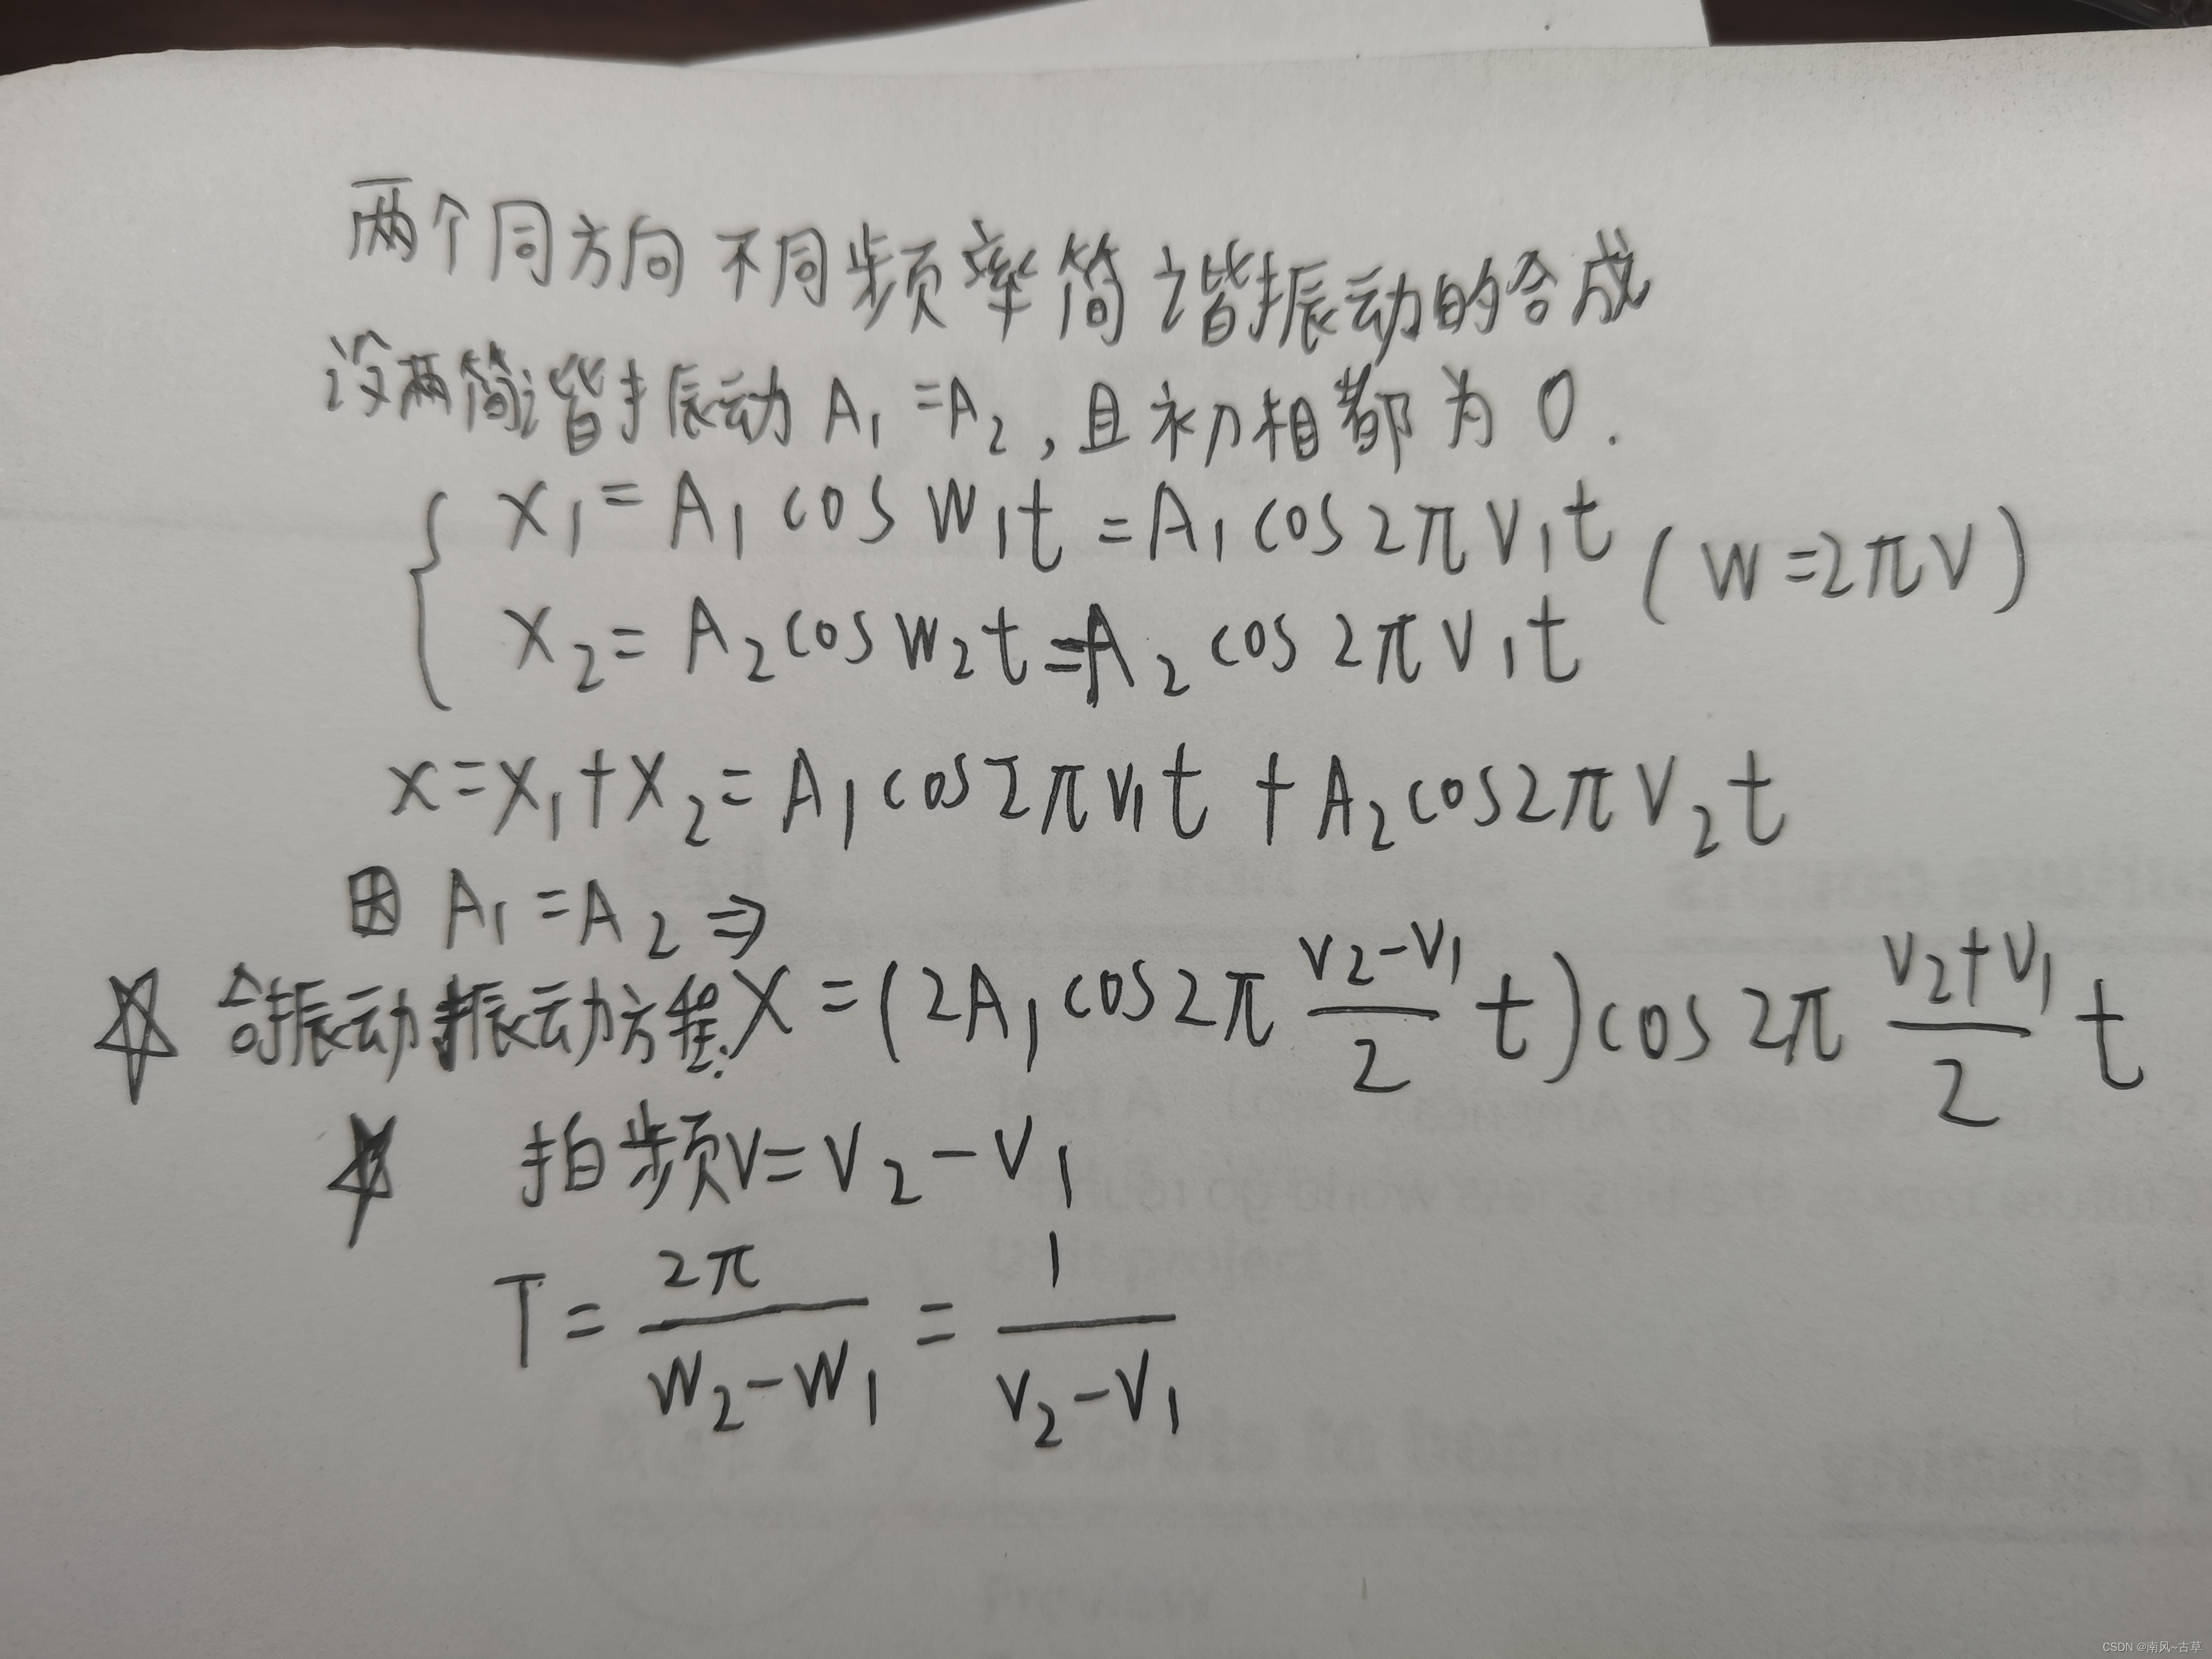 两个同方向不同频率简谐振动的合成
设两简谐振动 A₁=A₂,且初相都为0.
x₁=A₁cosw₁t=A₁cos2πv₁t (w=2πv)
x₂=A₂cosw₂t=A₂cos2πv₁t
x=x₁+x₂=A₁cos2πv₁t+A₂cos2πv₂t
因 A₁=A₂⇒
☆ 合振动振动方程:x=(2A₁cos2π\frac{v₂-v₁}{2}t)cos2π\frac{v₂+v₁}{2}t
☆ 拍频v=v₂-v₁
T=\frac{2π}{w₂-w₁}=\frac{1}{v₂-v₁}
Preview
CSDN @南风~古草